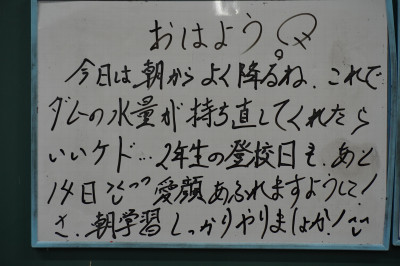 おはよう
今日は朝からよく降るね。これで
ダムの水量が持ち直してくれたら
いいケド…2年生の登校日も、あと
14日 愛顔あふれますように!
さ、朝学習しっかりやりましょか!